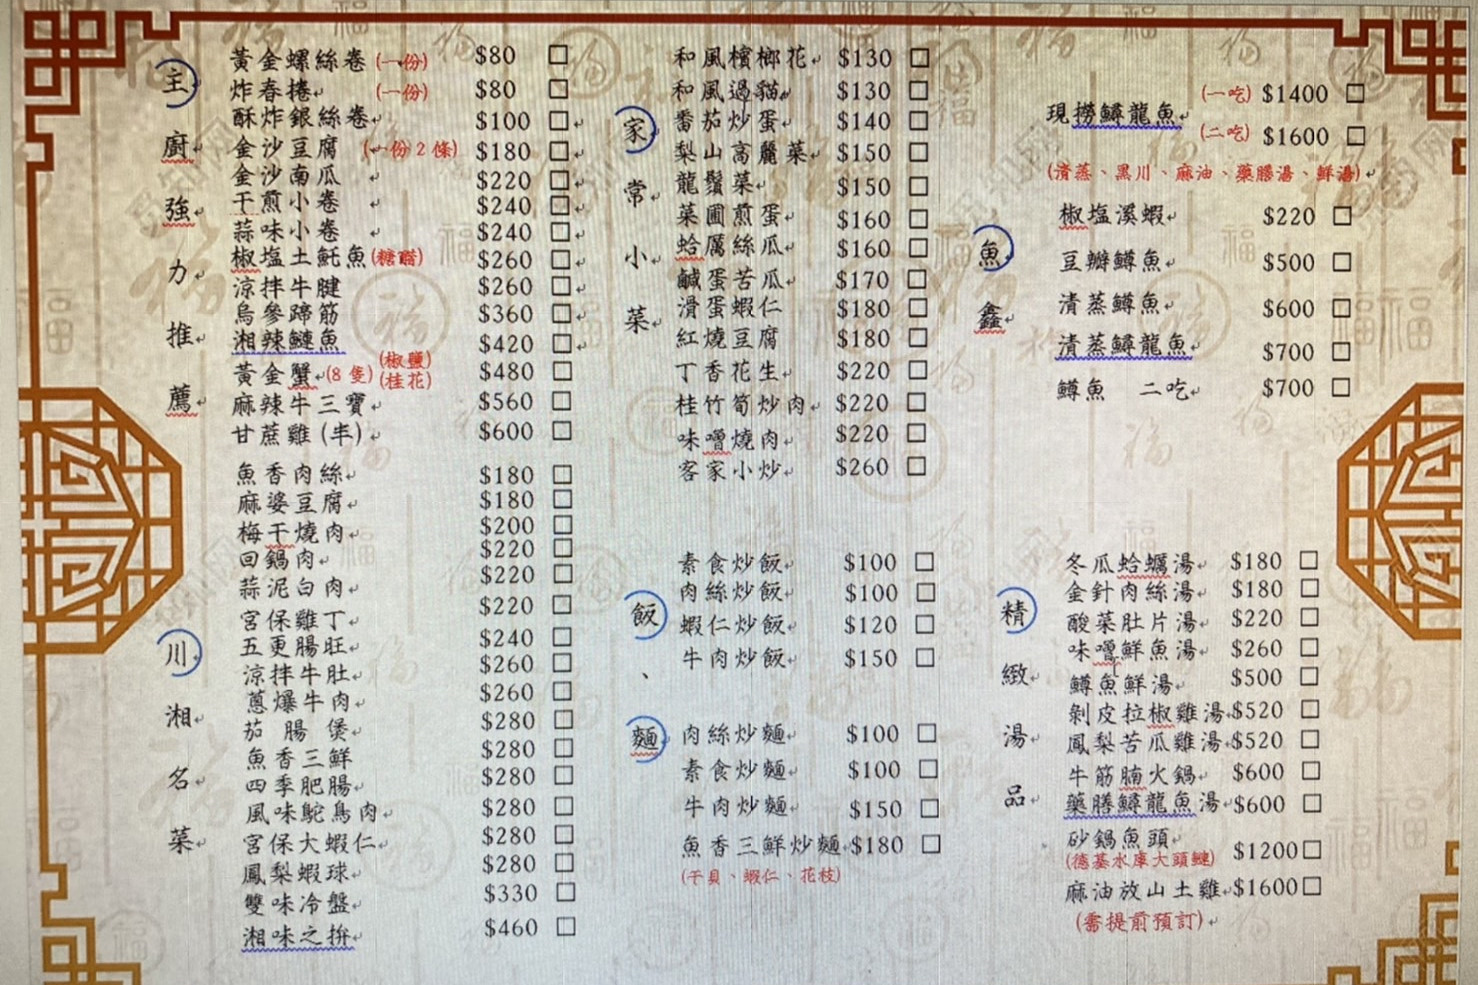 主廚強力推薦
黃金螺絲卷 (一份) $80 □
炸春捲 (一份) $80 □
酥炸銀絲卷 $100 □
金沙豆腐 (一份2條) $180 □
金沙南瓜 $220 □
干煎小卷 $240 □
蒜味小卷 $240 □
椒塩土魠魚(糖醋) $260 □
涼拌牛腱 $260 □
烏參蹄筋 $360 □
湘辣鰱魚 $420 □
黃金蟹(8隻) (椒鹽) (桂花) $480 □
麻辣牛三寶 $560 □
甘蔗雞(半) $600 □
川湘名菜
魚香肉絲 $180 □
麻婆豆腐 $180 □
梅干燒肉 $200 □
回鍋肉 $220 □
蒜泥白肉 $220 □
宮保雞丁 $220 □
五更腸旺 $240 □
涼拌牛肚 $260 □
蔥爆牛肉 $260 □
茄腸煲 $280 □
魚香三鮮 $280 □
四季肥腸 $280 □
風味鴕鳥肉 $280 □
宮保大蝦仁 $280 □
鳳梨蝦球 $280 □
雙味冷盤 $330 □
湘味之拚 $460 □
家常小菜
和風檳榔花 $130 □
和風過貓 $130 □
番茄炒蛋 $140 □
梨山高麗菜 $150 □
龍鬚菜 $150 □
菜圃煎蛋 $160 □
蛤厲絲瓜 $160 □
鹹蛋苦瓜 $170 □
滑蛋蝦仁 $180 □
紅燒豆腐 $180 □
丁香花生 $220 □
桂竹筍炒肉 $220 □
味噌燒肉 $220 □
客家小炒 $260 □
飯、麵
素食炒飯 $100 □
肉絲炒飯 $100 □
蝦仁炒飯 $120 □
牛肉炒飯 $150 □
肉絲炒麵 $100 □
素食炒麵 $100 □
牛肉炒麵 $150 □
魚香三鮮炒麵 $180 □
(干貝、蝦仁、花枝)
魚鱻
現撈鱘龍魚 (一吃) $1400 □
(二吃) $1600 □
(清蒸、黑川、麻油、藥膳湯、鮮湯)
椒塩溪蝦 $220 □
豆瓣鱒魚 $500 □
清蒸鱒魚 $600 □
清蒸鱘龍魚 $700 □
鱒魚 二吃 $700 □
精緻湯品
冬瓜蛤蠣湯 $180 □
金針肉絲湯 $180 □
酸菜肚片湯 $220 □
味噌鮮魚湯 $260 □
鱒魚鮮湯 $500 □
剝皮拉椒雞湯 $520 □
鳳梨苦瓜雞湯 $520 □
牛筋腩火鍋 $600 □
藥膳鱘龍魚湯 $600 □
砂鍋魚頭 $1200 □
(德基水庫大頭鰱)
麻油放山土雞 $1600 □
(需提前預訂)